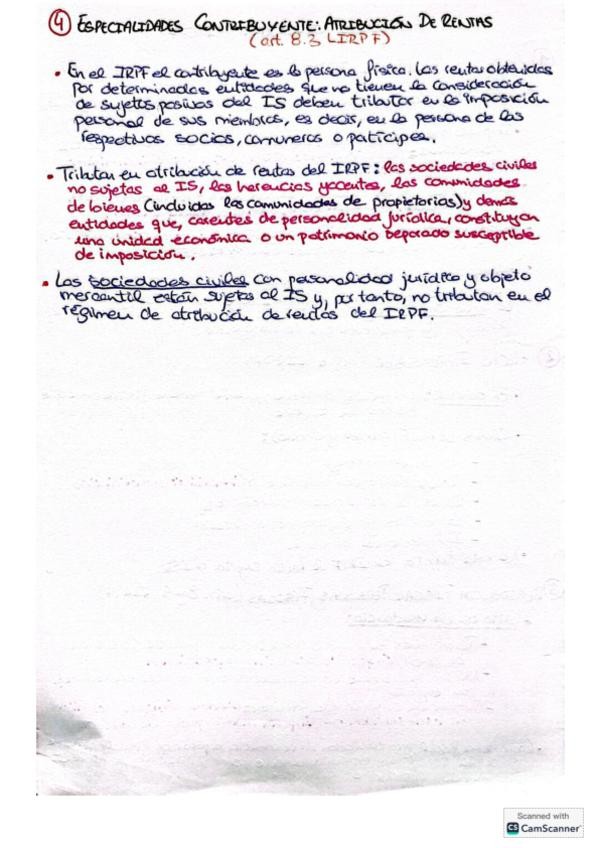 4 ESPECIALIDADES CONTRIBUYENTE: ATRIBUCIÓN DE RENTAS
(art. 8.3 LIRPF)
• En el IRPF el contribuyente es la persona física. Las rentas obtenidas
por determinadas entidades que no tienen la consideración
de sujetos pasivos del IS deben tributar en la imposición
personal de sus miembros, es decir, en la persona de los
respectivos socios, comuneros o partícipes.
• Tributan en atribución de rentas del IRPF: las sociedades civiles
no sujetas al IS, las herencias yacentes, las comunidades
de bienes (incluidas las comunidades de propietarios) y demás
entidades que, carentes de personalidad jurídica, constituyan
una unidad económica o un patrimonio separado susceptible
de imposición.
• Las sociedades civiles con personalidad jurídica y objeto
mercantil están sujetas al IS y, por tanto, no tributan en el
régimen de atribución de rentas del IRPF.
Scanned with
CS CamScanner